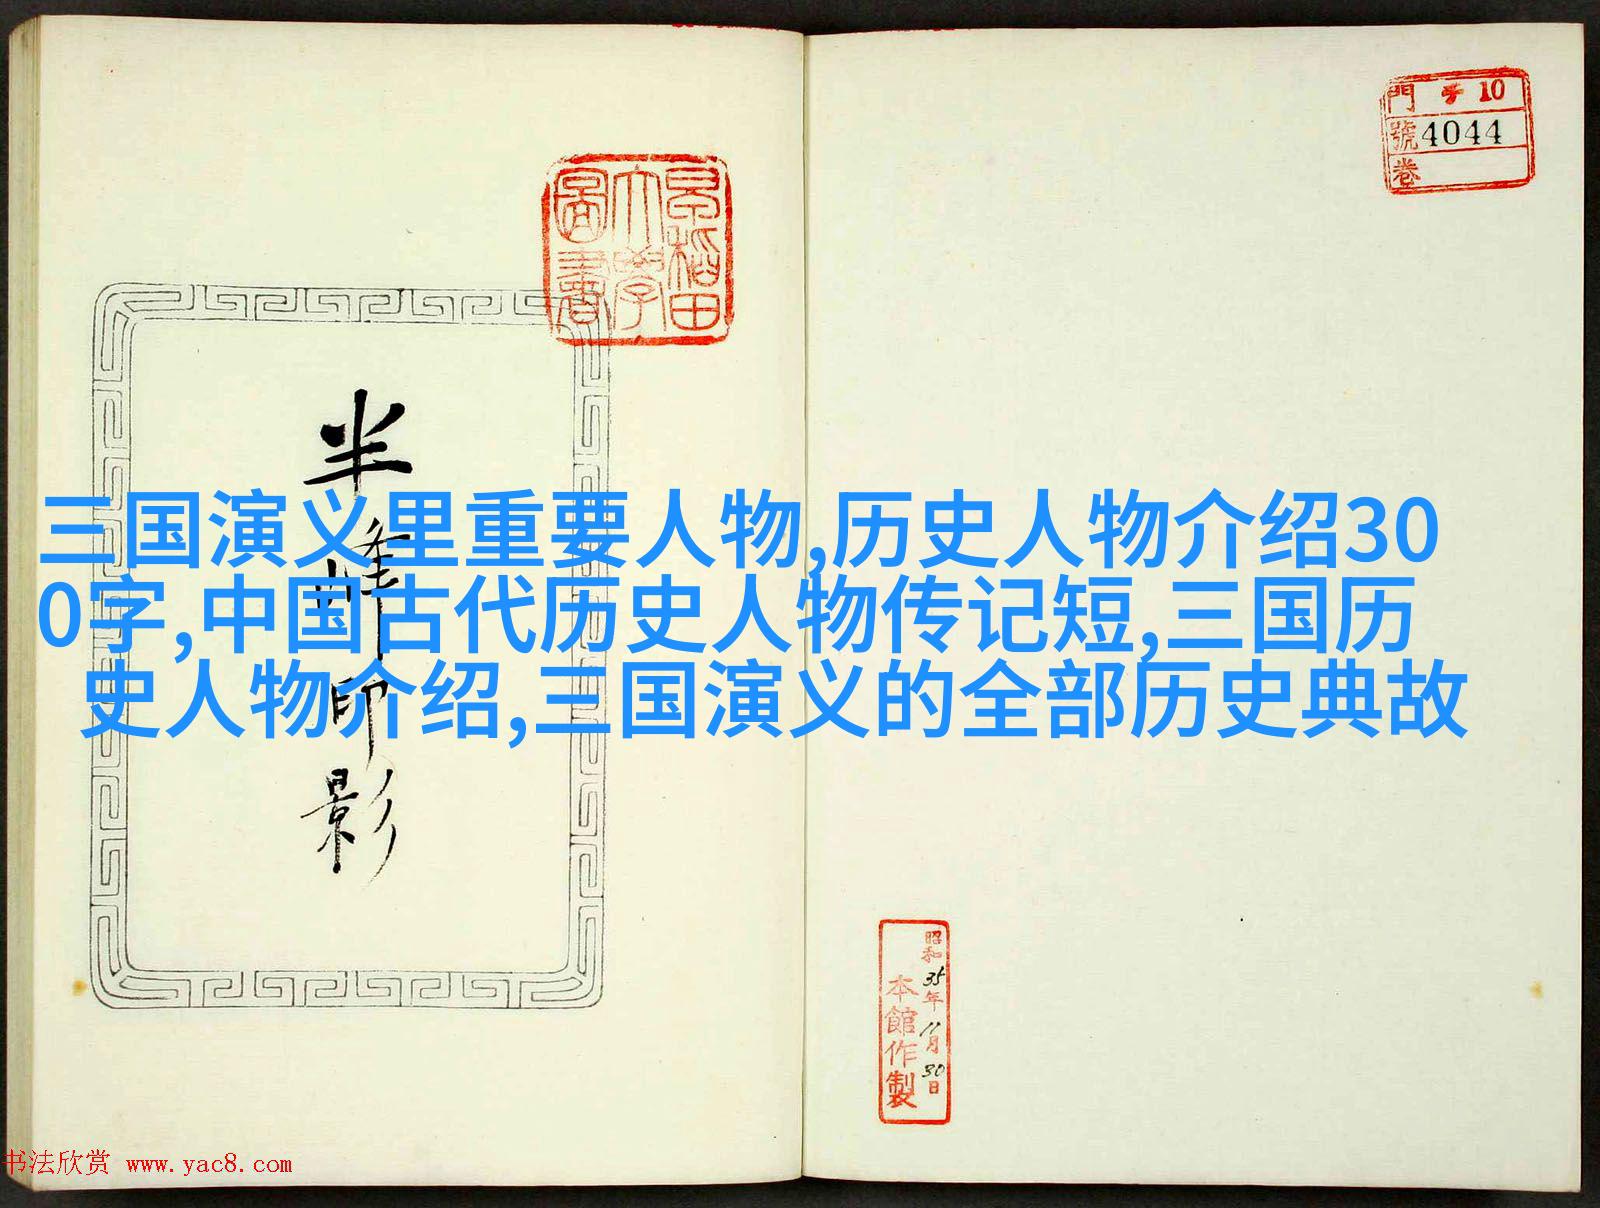 門 チ 10
號 4044
卷
早稲田
大學
圖書
三国演义里重要人物,历史人物介绍30
0字,中国古代历史人物传记短,三国历
史人物介绍,三国演义的全部历史典故
半峰印影
昭和35年11月30日
本館作製
书法欣赏 www.yac8.com